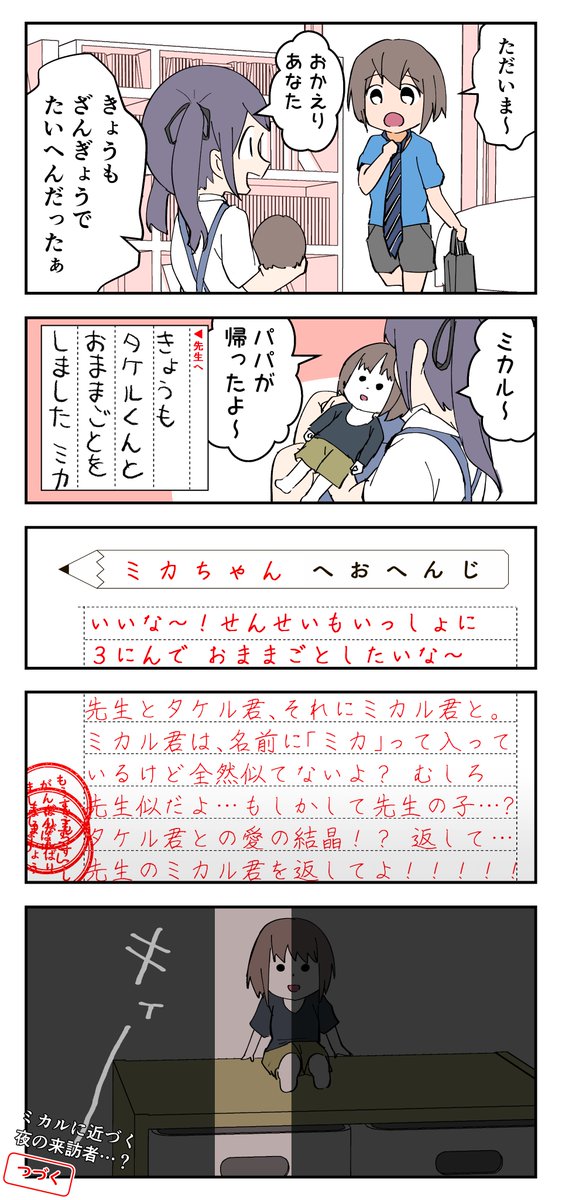 ただいま〜
おかえり
あなた
きょうも
ざんぎょうで
たいへんだったぁ
ミカル〜
パパが
帰ったよ〜
◀先生へ
きょうも
タケルくんと
おままごとを
しました ミカ
ミカちゃん へおへんじ
いいな〜！せんせいもいっしょに
３にんで おままごとしたいな〜
先生とタケル君、それにミカル君と。
ミカル君は、名前に「ミカ」って入って
いるけど全然似てないよ？ むしろ
先生似だよ…もしかして先生の子…？
タケル君との愛の結晶！？ 返して…
先生のミカル君を返してよ！！！！！
キィー
ミカルに近づく
夜の来訪者…？
つづく